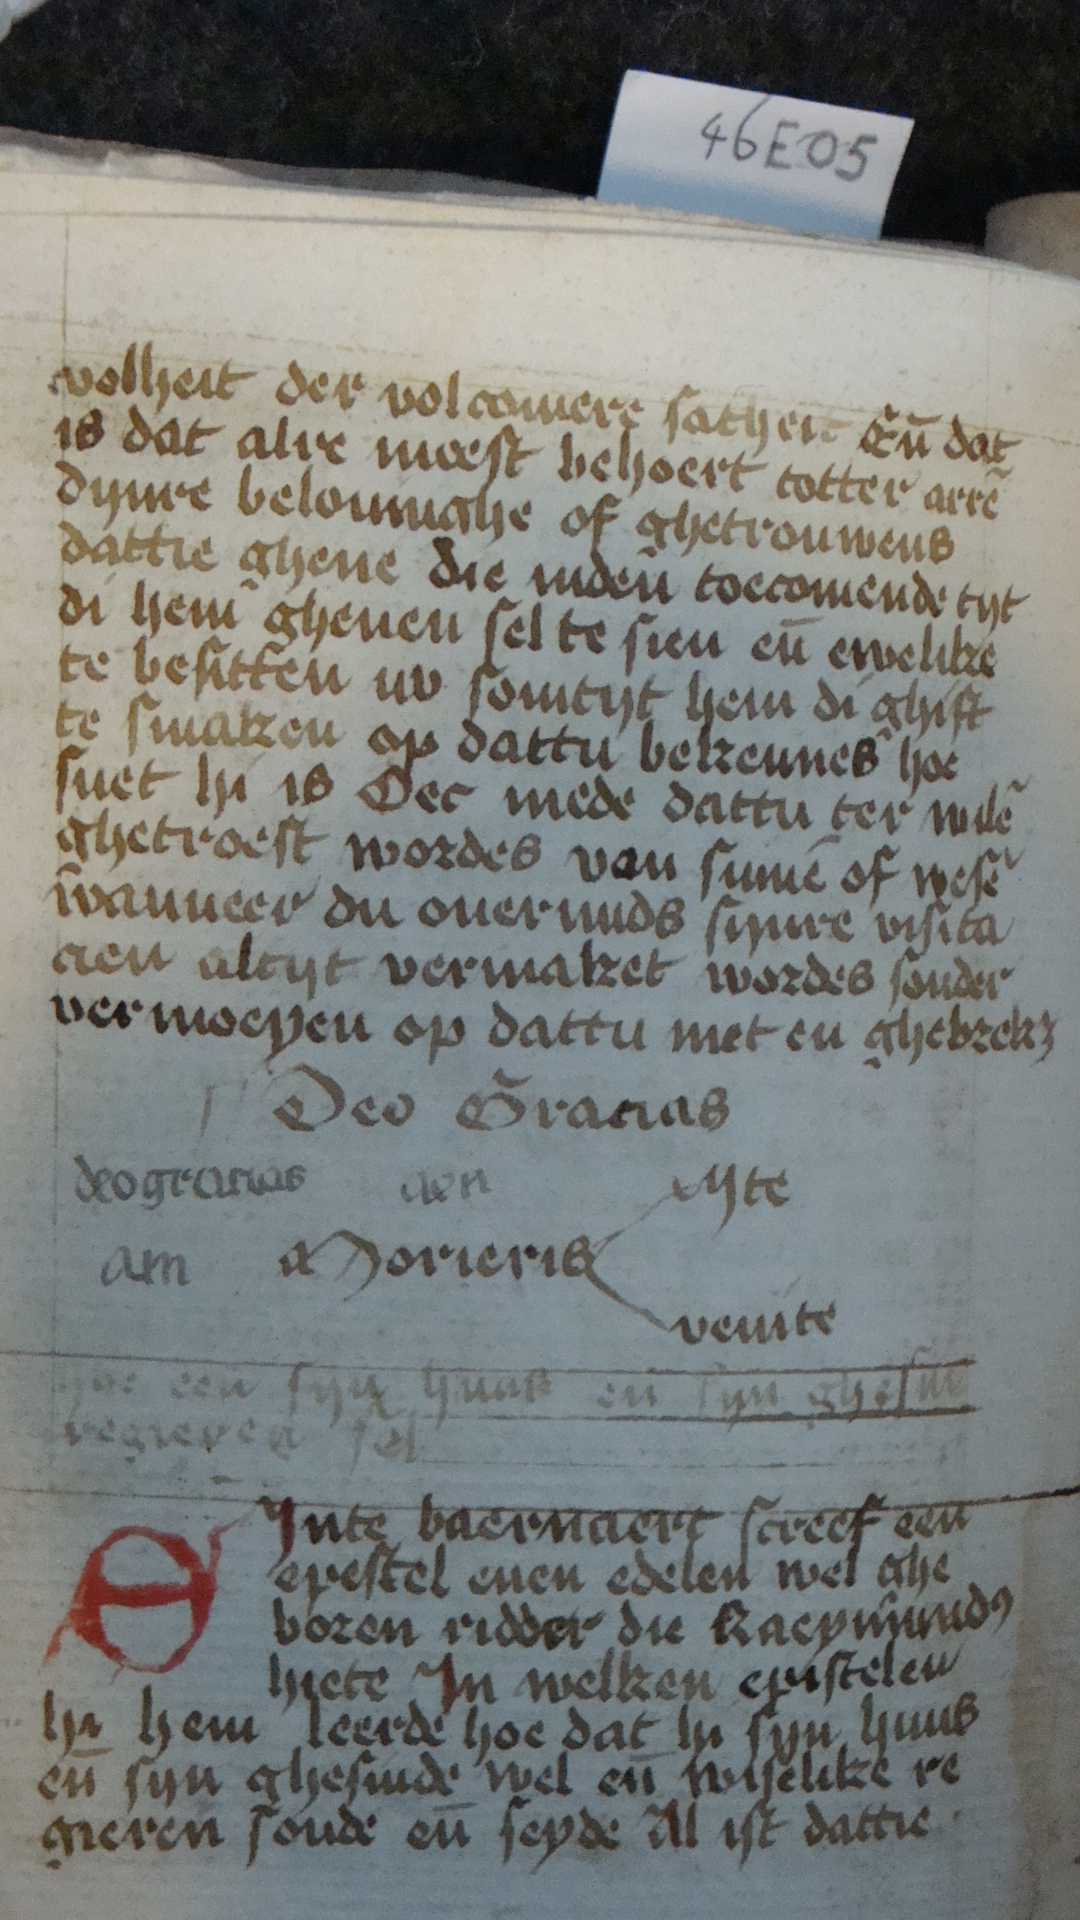 46E05
volheit der volcomere satheit Eñ dat
is dat alre meest behoert totter arrē
dynre belouinghe of ghetrouwens
dattie ghene die inden toecomende tyt
di hem gheuen sel te sien eñ ewelike
te besitten nv somtyt hem di ghift
te smaken op dattu bekennes hoe
suet hi is Oec mede dattu ter wilē
ghetroest wordes van sinnē of wesē
wanneer du ouermids synre visita
cien altyt vermaket wordes sonder
vermoeyen op dattu niet en ghebrekz
Deo Gracias
deogracias aen yte
am Morieris
venite
hoe een syn huus en syn ghesin
regieren sel
Synte baernaert screef een
epistel enen edelen wel ghe
boren ridder die Raeymund9
hiete In welken epistelen
hi hem leerde hoe dat hi syn huus
eñ syn ghesinde wel eñ wiselike re
gieren soude eñ seyde Al ist dattie